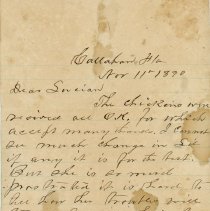 Callahan Fla
Nov 11th 1890
Dear Lucian,
The Chickens were
recived all O.K. for which
accept many thanks. I cannot
see much change in
if any it is for the best.
But she is so much
prostrated it is hard to
tell how her troubles will